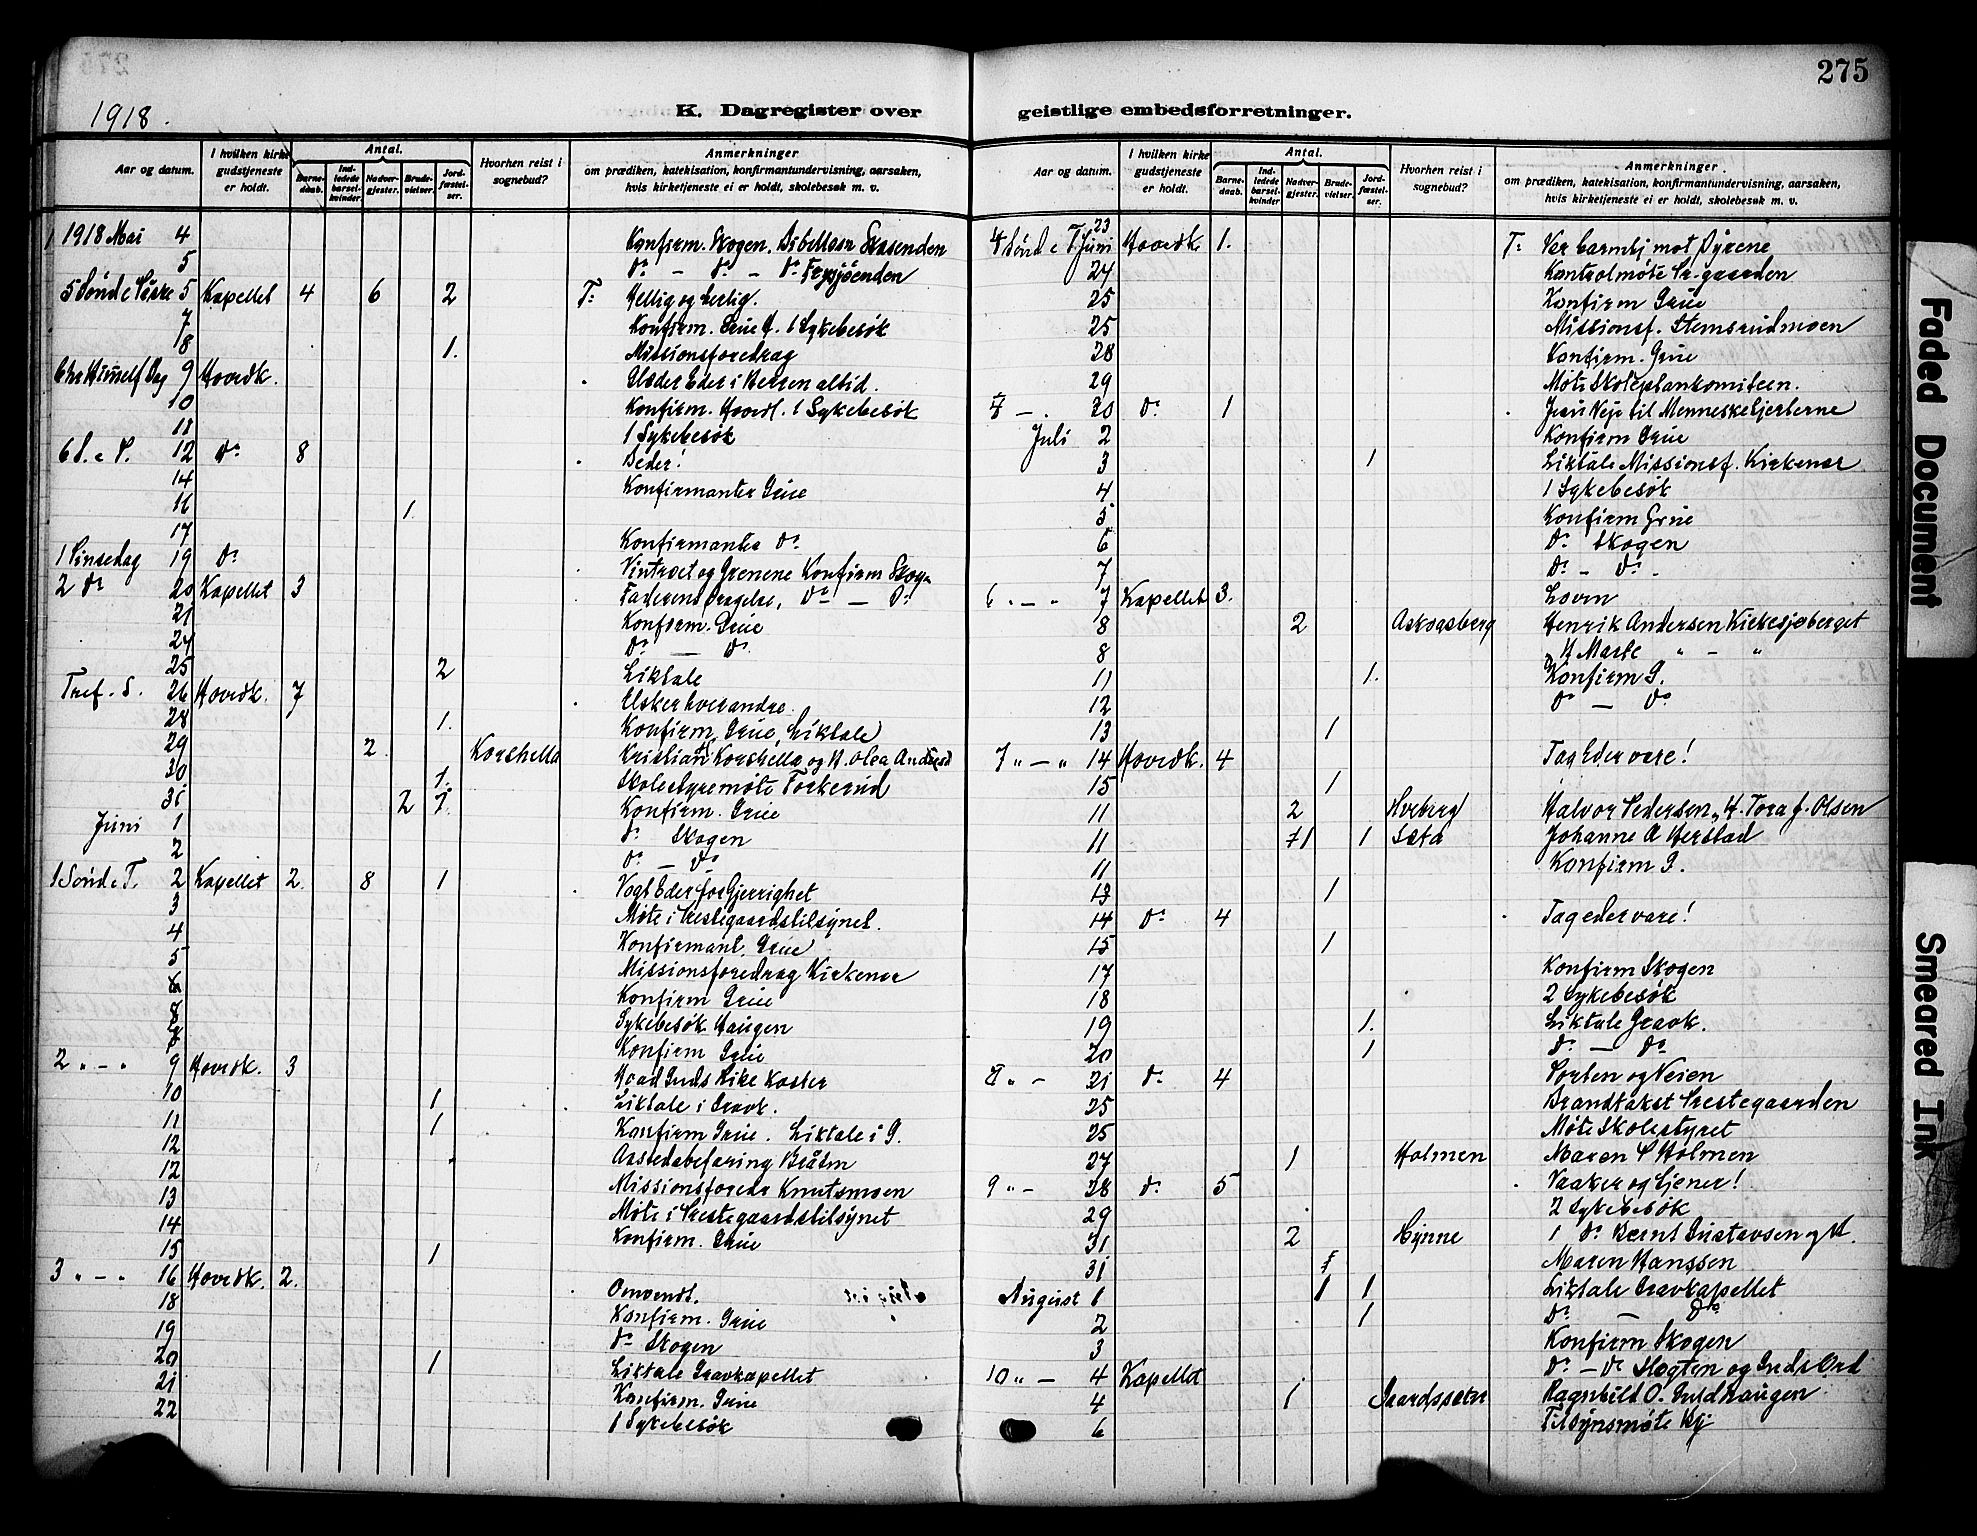 275
1918.
K. Dagregister over geistlige embedsforretninger.
Aar og datum.
I hvilken kirke gudstjeneste er holdt.
Antal.
Barnedaab.
Indledede barselkvinder
Nadvergjester.
Brudevielser.
Jordfæstelser.
Hvorhen reist i sognebud?
Anmerkninger
om prædiken, katekisation, konfirmantundervisning, aarsaken,
hvis kirketjeneste ei er holdt, skolebesøk m. v.
1918 Mai 4 Konfirm. Skogen. Skasenden
5 do - do - do Frysjøenden
5 Sönd e Paske 5 Kapellet 4 6 2 T: Hellig og herlig.
7 Konfirm. Grue H. 1 Sykebesøk
8 1. Missionsforedrag
Chr Himmelf Dag 9 Hovedk. Glæder Eder i Herren altid.
10 Konfirm. Hovedk. 1 Sykebesøk
11 1 Sykebesøk
6 S. e P. 12 do 8 Beder!
14 Konfirmanter Grue
16 1.
17 Konfirmanter do
1 Pinsedag 19 do Vintræet og Grenene Konfirm Skogn
2 do 20 Kapellet 3 Faderens Dragelse, do - do
21 Konfirm. Grue
24 do - do
25 2 Liktale
Tref. S. 26 Hovedk. 7 Elsker hverandre.
28 1. Konfirm, Grue, Liktale
29 2 Korshella Kristian Korshella og H. Olea Andersd
30 1. Skolestyremøte Torkerud
31 2 1. Konfirm. Grue
Juni 1 do Skogen
2 do - do
1 Sönd e T. 2 Kapellet 2. 8 1 Vogt Eder for Gjerrighet
3 Møte i Prestegaardstilsynet.
4 Konfirmant. Grue
5 Missionsforedrag Kirkener
6 Konfirm Grue
8 Sykebesøk Haugen
Konfirm Grue
2 " - " 9 Hovedk. 3 Hvad Guds Rike koster
10 1 Liktale i Gravk.
11 1 Konfirm Grue. Liktale i G.
12 Aastedsbefaring Bråten
12 Missionsforedr Knutsmoen
13 Møte i Prestegaardstilsynet
14 Konfirm. Grue
15 1
3 " - " 16 Hovedk. 2. Omvendt.
18 Konfirm. Grue
19 do Skogen
20 1 Liktale Gravkapellet
21 Konfirm. Grue
22 1 Sykebesøk
Aar og datum.
I hvilken kirke gudstjeneste er holdt.
Antal.
Barnedaab.
Indledede barselkvinder
Nadvergjester.
Brudevielser.
Jordfæstelser.
Hvorhen reist i sognebud?
Anmerkninger
om prædiken, katekisation, konfirmantundervisning, aarsaken,
hvis kirketjeneste ei er holdt, skolebesøk m. v.
4 Sönd e T Juni 23 Hovedk 1. T: Vær barmhj mot Dyrene
24 Kontrolmöte Pr.gaarden
25 Konfirm Grue
25 Missionsf. Stemsrudmoen
28 Konfirm. Grue
29 Møte Skoleplankomiteen.
30 do 1 Jesu Veje til Menneskehjerterne
Juli 2 Konfirm Grue
3 1 Liktale Missionsf. Kirkener
4 1 Sykebesøk
5 Konfirm Grue
6 do Skogen
7 do - do -
6 " - " 7 Kapellet 3. Loven
8 2 Askogsberg Henrik Andersen Kirkesjøberget
8 H Marte " - "
11 1. Konfirm G.
12 do - do
13 1
7 " - " 14 Hovedk. 4 Tag Eder vare!
15 1
11 2 Hveberg Halvor Pedersen, H. Tora f. Olsen
11 1 1 Sæta Johanne A Herstad
11 Konfirm G.
13 1
14 do 4 Tag eder vare!
15 1
17 Konfirm Skogen
18 2 Sykebesøk
19 1. Liktale Gravk.
20 1 do - do
8 " - 21 do 4 Porten og Veien
25 Brandtakst Prestegaarden
25 Møte Skolestyret
27 1 Holmen Maren P Holmen
9 " - 28 do 5 Vaaker og tjener!
29 2 Sykebesøk
31 2 Hynne 1 do Bernt Gustavsen og H.
31 Maren Hanssen
August 1 1 1 Liktale Gravkapellet
2 1 do - do
3 Konfirm Skogen
10 " - 4 Kapellet do - do Slegten og Guds Ord
4 1 Gaardssæter Ragnhild O. Guldhaugen
6 Tilsynsmøte Kj
Faded Document
Smeared Ink